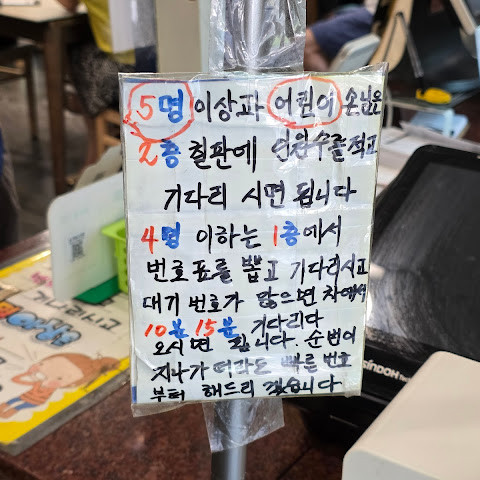 5명 이상과 어린이 손님은
2층 칠판에 인원수를 적고
기다리 시면 됩니다
4명 이하는 1층에서
번호표를 뽑고 기다리시고
대기 번호가 많으면 차에서
10분 15분 기다리다
오시면 됩니다. 순번이
지나가 더라도 빠른 번호
부터 해드리 겠습니다
SINDOH